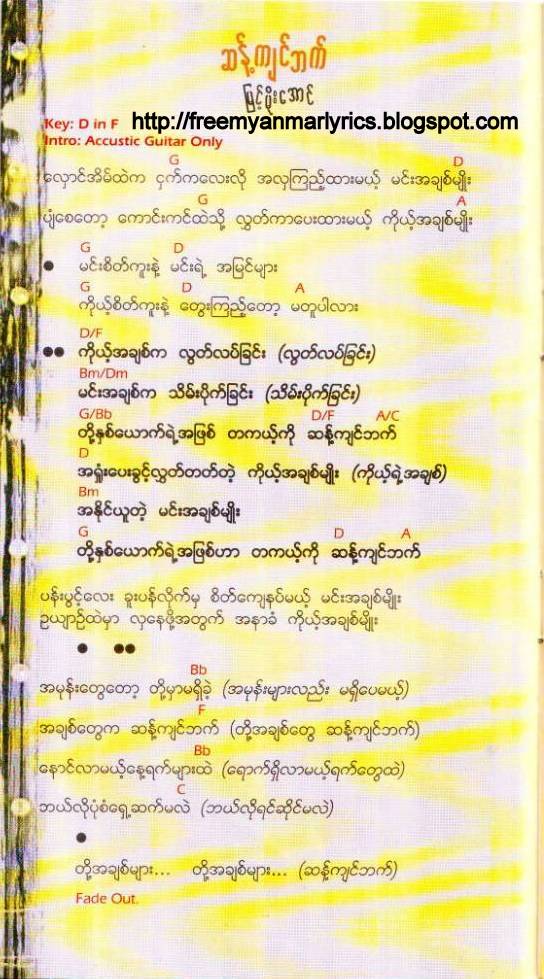 ဆန့်ကျင်ဘက်
မြင့်မိုးအောင်
Key: D in F http://freemyanmarlyrics.blogspot.com
Intro: Accustic Guitar Only
G D
လှောင်အိမ်ထဲက ငှက်ကလေးလို အလှကြည့်ထားမယ့် မင်းအချစ်မျိုး
G A
ပျံစေတော့ ကောင်းကင်ထဲသို့ လွှတ်ကာပေးထားမယ့် ကိုယ့်အချစ်မျိုး
G D
● မင်းစိတ်ကူးနဲ့ မင်းရဲ့ အမြင်များ
G D A
ကိုယ့်စိတ်ကူးနဲ့ တွေးကြည့်တော့ မတူပါလား
D/F
●● ကိုယ့်အချစ်က လွတ်လပ်ခြင်း (လွတ်လပ်ခြင်း)
Bm/Dm
မင်းအချစ်က သိမ်းပိုက်ခြင်း (သိမ်းပိုက်ခြင်း)
G/Bb D/F A/C
တို့နှစ်ယောက်ရဲ့အဖြစ် တကယ့်ကို ဆန့်ကျင်ဘက်
D
အရှုံးပေးခွင့်လွှတ်တတ်တဲ့ ကိုယ့်အချစ်မျိုး (ကိုယ့်ရဲ့အချစ်)
Bm
အနိုင်ယူတဲ့ မင်းအချစ်မျိုး
G D A
တို့နှစ်ယောက်ရဲ့အဖြစ်ဟာ တကယ့်ကို ဆန့်ကျင်ဘက်
ပန်းပွင့်လေး ခူးပန်လိုက်မှ စိတ်ကျေနပ်မယ့် မင်းအချစ်မျိုး
ဥယျာဉ်ထဲမှာ လှနေဖို့အတွက် အနာခံ ကိုယ့်အချစ်မျိုး
● ●●
Bb
အမုန်းတွေတော့ တို့မှာမရှိခဲ့ (အမုန်းများလည်း မရှိပေမယ့်)
F
အချစ်တွေက ဆန့်ကျင်ဘက် (တို့အချစ်တွေ ဆန့်ကျင်ဘက်)
Bb
နောင်လာမယ့်နေ့ရက်များထဲ (ရောက်ရှိလာမယ့်ရက်တွေထဲ)
C
ဘယ်လိုပုံစံရှေ့ဆက်မလဲ (ဘယ်လိုရင်ဆိုင်မလဲ)
●
တို့အချစ်များ... တို့အချစ်များ... (ဆန့်ကျင်ဘက်)
Fade Out.